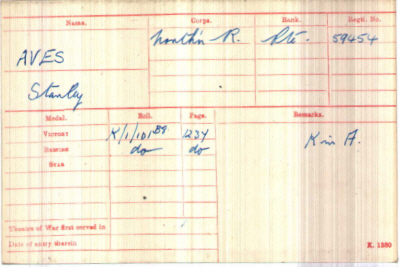 Name. Corps. Rank. Regtl. No.
AVES North'n R. Pte. 59454
Stanley
Medal. Roll. Page. Remarks.
VICTORY K/1/101B9. 1234 K in A.
BRITISH do do
STAR
Theatre of War first served in
Date of entry therein
K. 1380